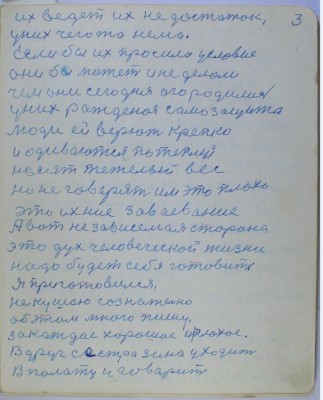 3
их ведет их не достаток,
у них чегота нема.
Если бы их просила условие
они бы может и не делали
чем они сегодня огородились
у них ражденоя самозащита
люди ей верют крепко
и одиваются по теплей
носят тежелый вес
но не говарят им это плохо
это ихние заваевание
А вот не зависемая сторона
это дух человеческой жизни
надо будет себя готовить
я приготовился,
не кушаю сознательно
об этом много пишу,
за каждае хорошое и плохое.
Вдруг сестра зина уходит
В полату и говарит